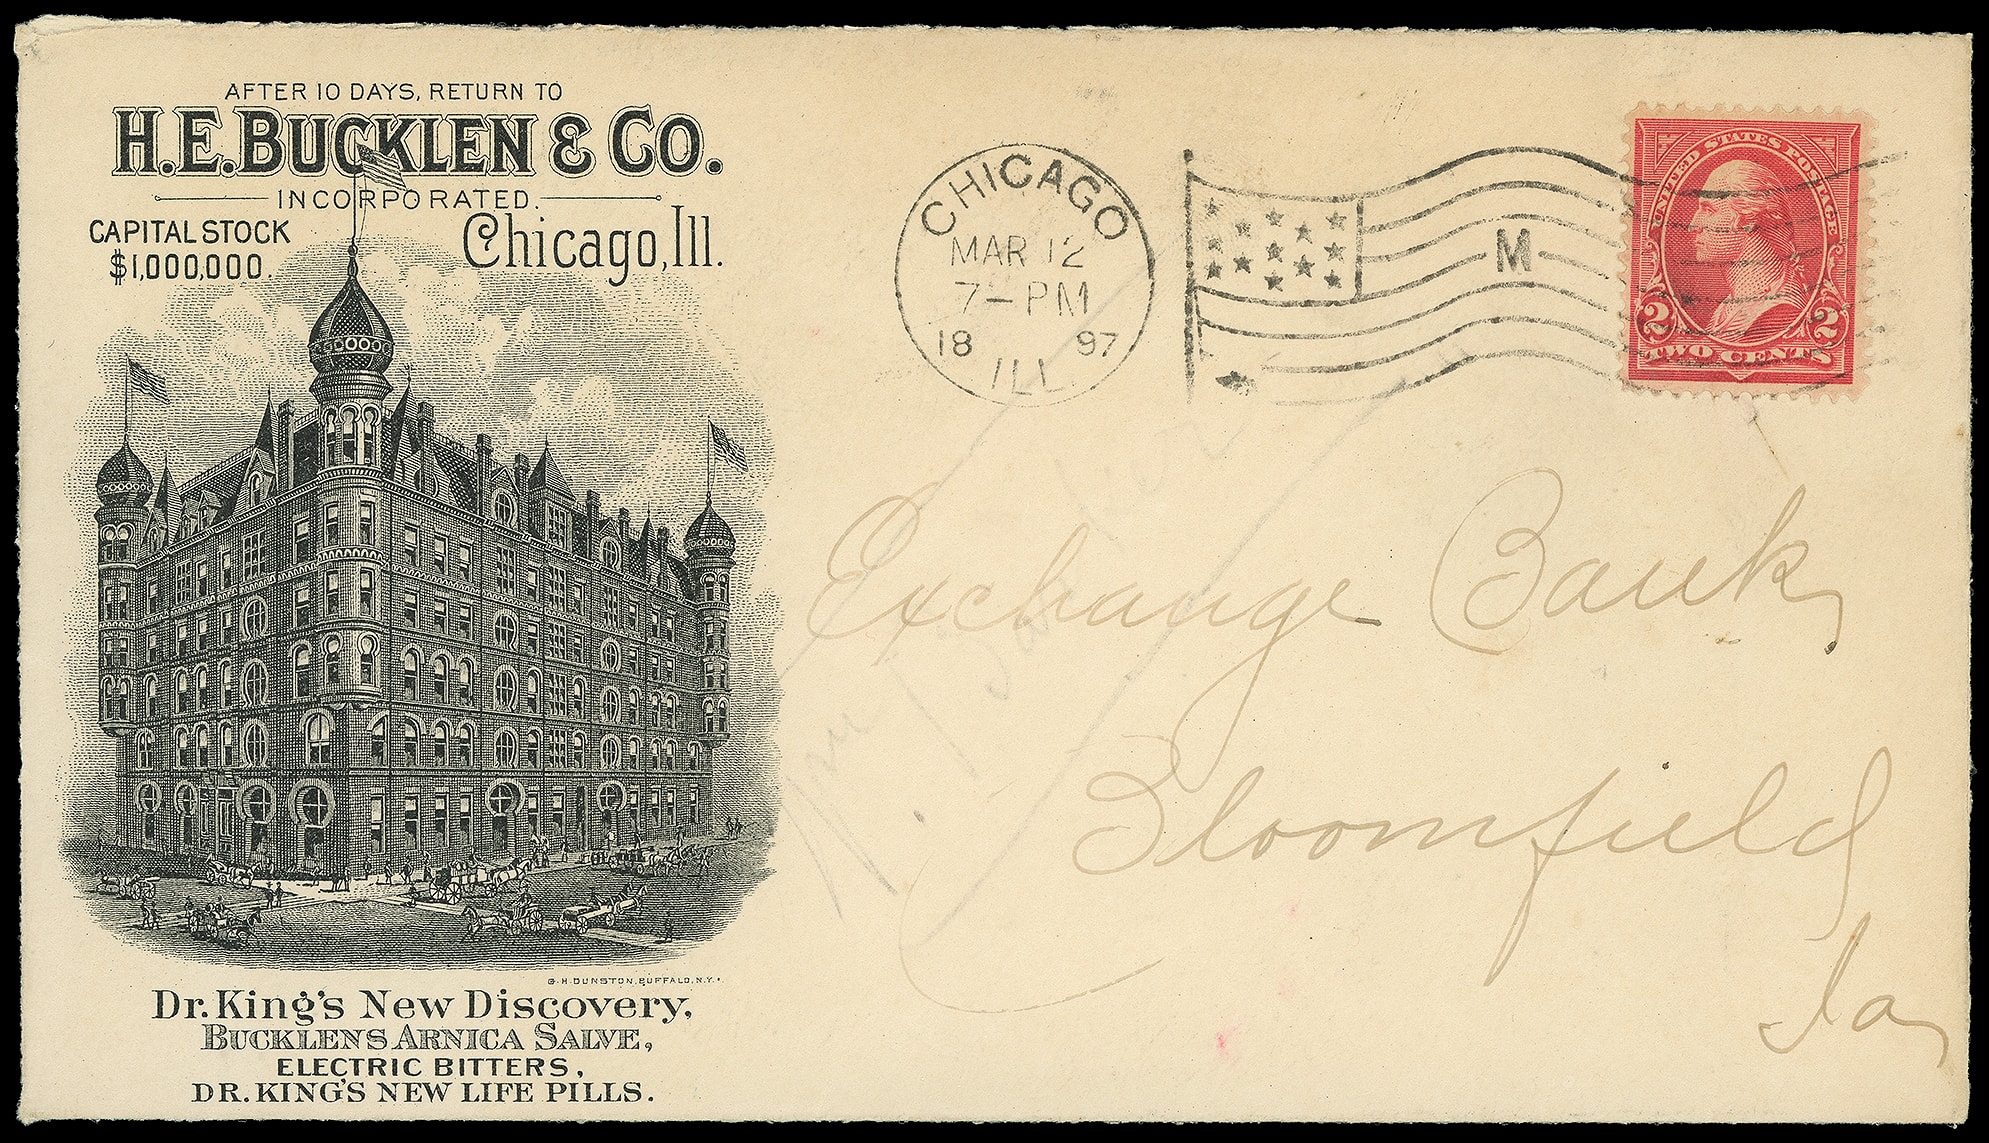 AFTER 10 DAYS, RETURN TO
H.E. BUCKLEN & CO.
INCORPORATED.
CAPITAL STOCK
$1,000,000.
Chicago, Ill.
G.H. DUNSTON, BUFFALO, N.Y.
Dr. King's New Discovery,
BUCKLENS ARNICA SALVE,
ELECTRIC BITTERS,
DR. KING'S NEW LIFE PILLS.
CHICAGO
MAR 12
7-PM
18 97
ILL.
M
UNITED STATES POSTAGE
2 2
TWO CENTS
Exchange Bank,
Bloomfield
Ia,